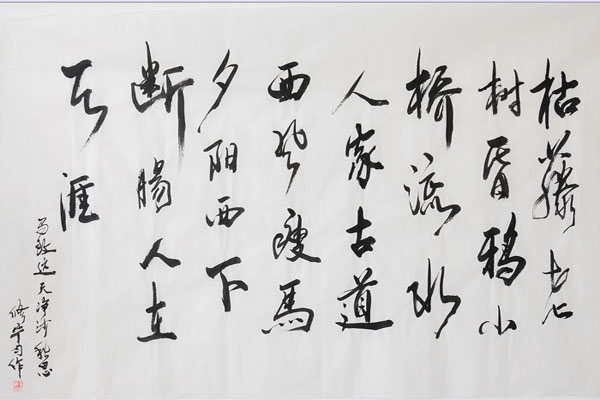 枯藤老
树昏鸦小
桥流水
人家古道
西风瘦馬
夕阳西下
断腸人在
天涯
马致远天净沙秋思
修宁习作